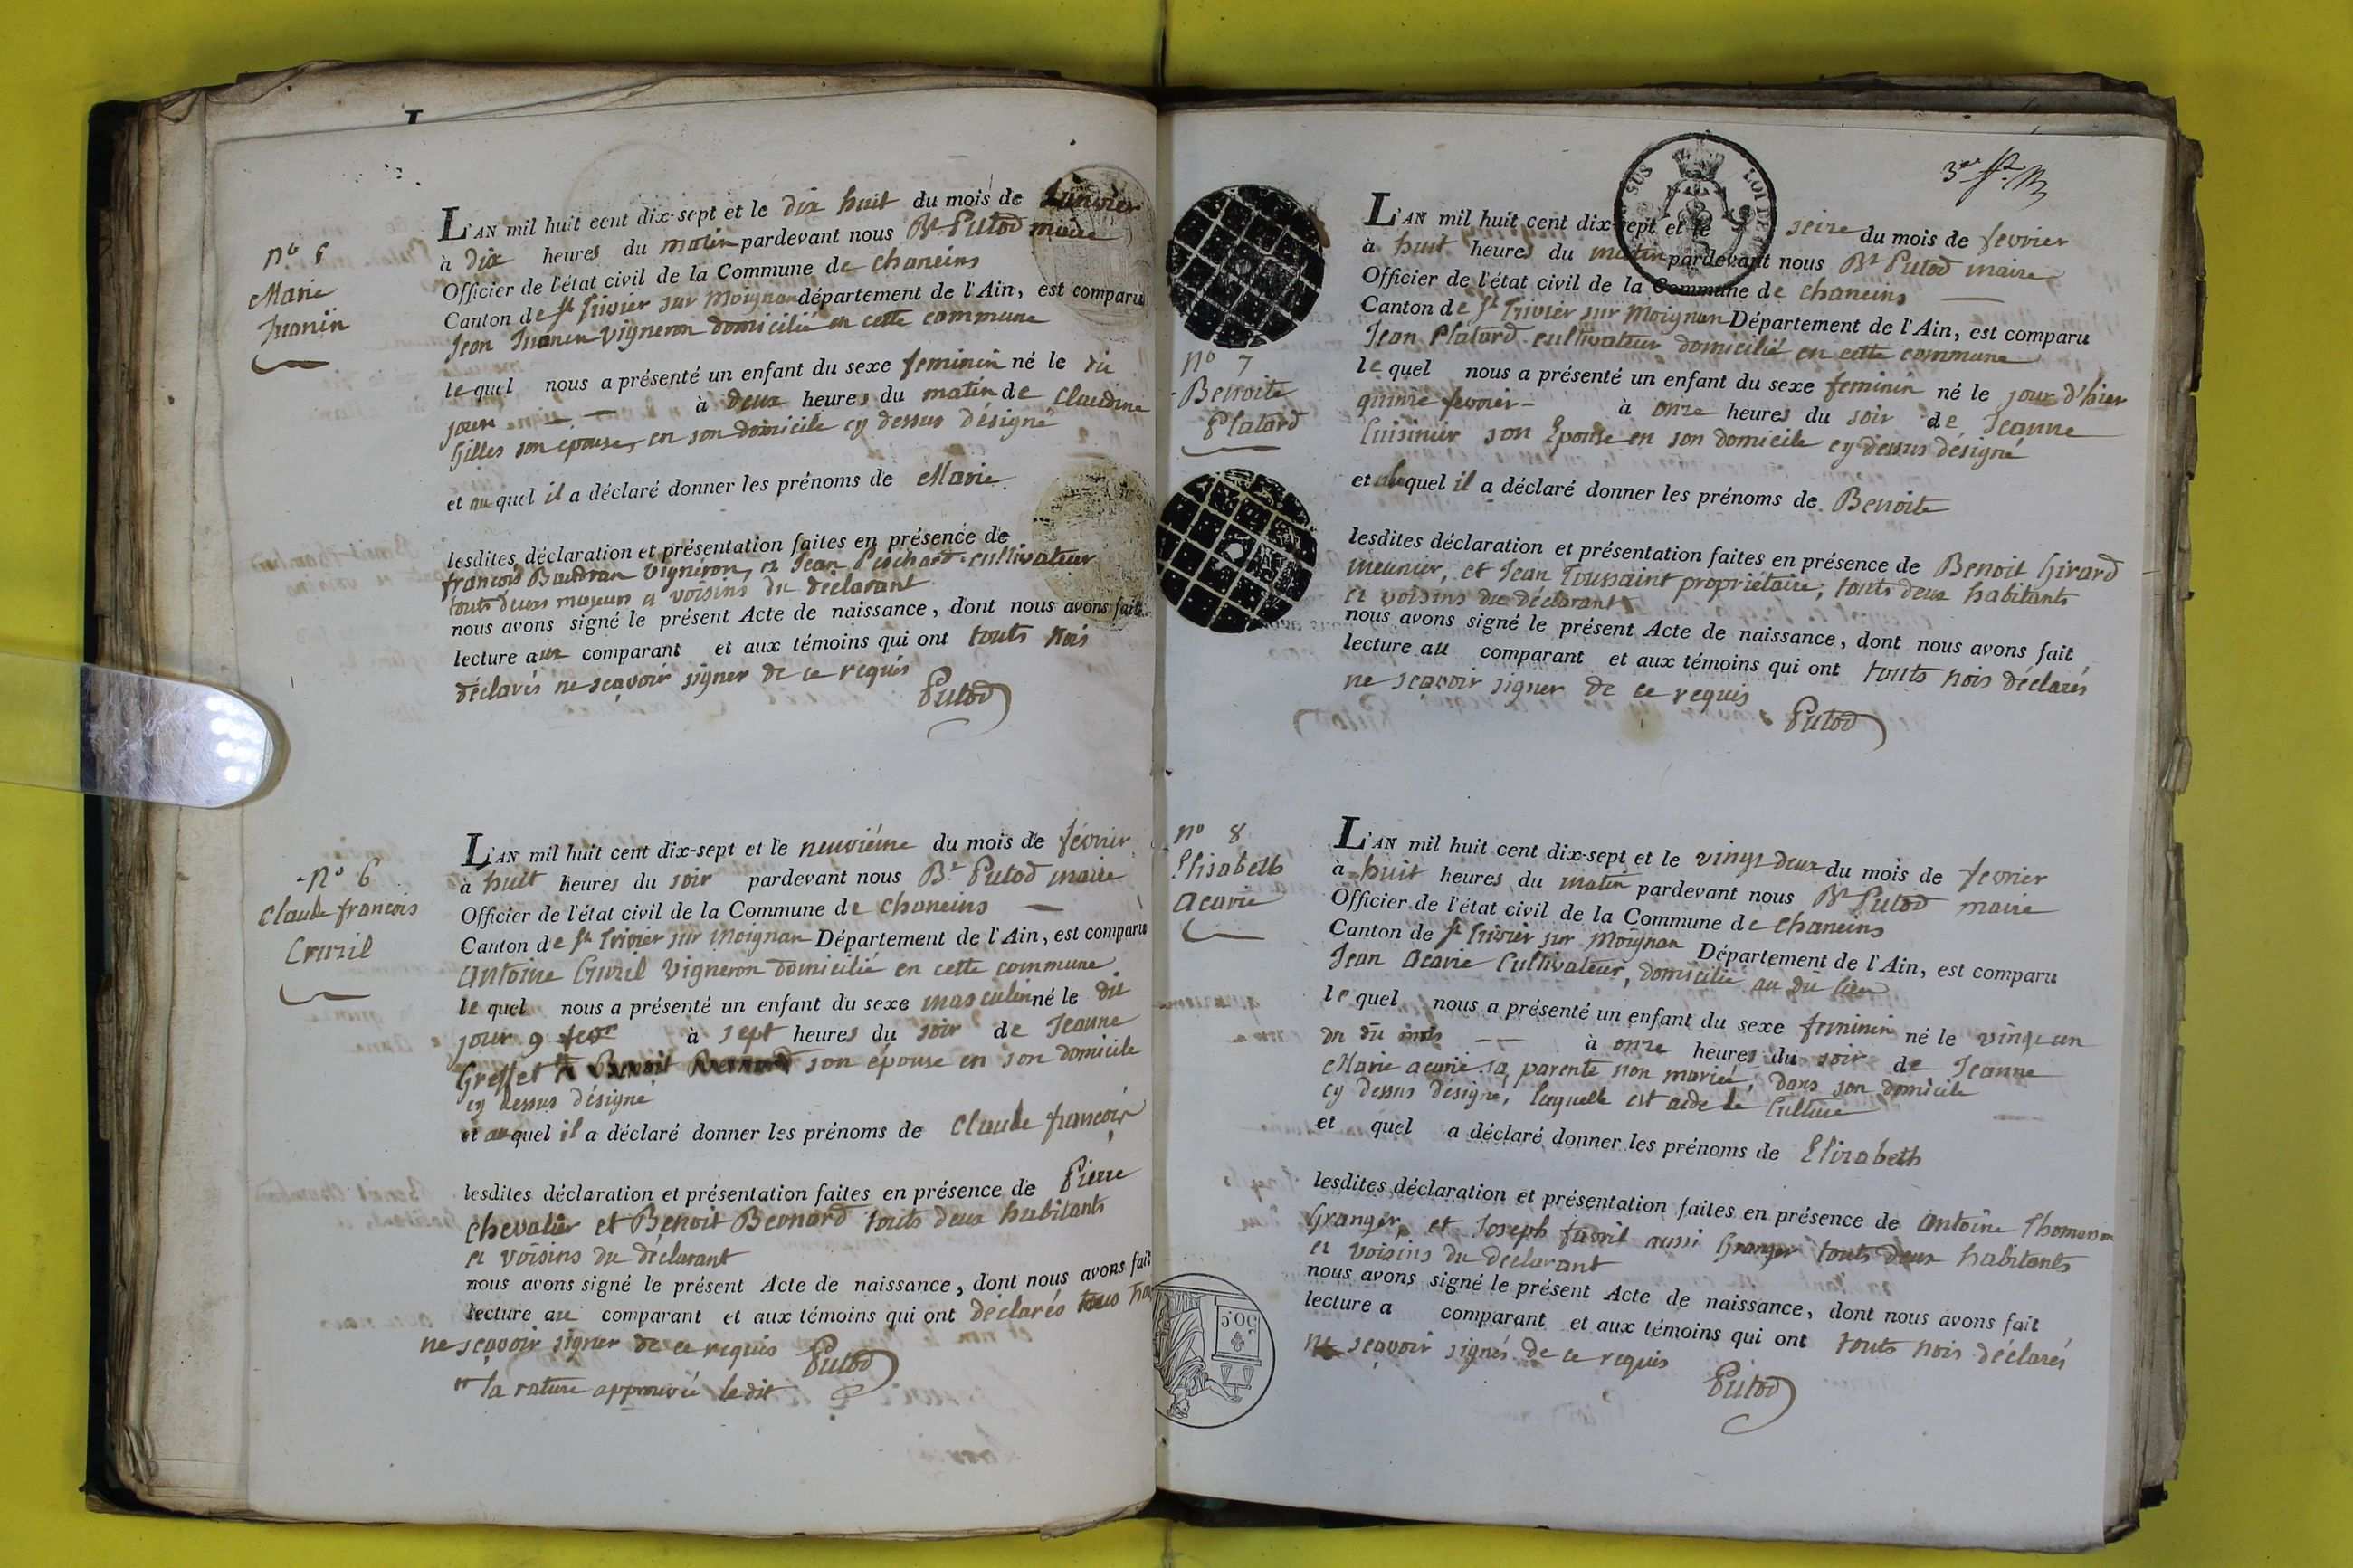 L'AN mil huit cent dix-sept et le dix huit du mois de Janvier
à dix heures du matin pardevant nous Bt Putod maire
Officier de l'état civil de la Commune de chaneins
Canton de St Trivier sur Moignan département de l'Ain, est comparu
Jean Juanin vigneron domicilié en cette commune
lequel nous a présenté un enfant du sexe feminin né le du
jour à deux heures du matin de Claudine
Gilles son epouse, en son domicile cy dessus désigné
et auquel il a déclaré donner les prénoms de Marie
lesdites déclaration et présentation faites en présence de
françois Baudran vigneron, et Jean Pischard cultivateur
touts deux majeurs et voisins du déclarant
nous avons signé le présent Acte de naissance, dont nous avons fait
lecture aux comparant et aux témoins qui ont touts trois
déclarés ne sçavoir signer de ce requis
Putod
no 5
Marie
Juanin
L'AN mil huit cent dix-sept et le neuviéme du mois de février
à huit heures du soir pardevant nous Bt Putod maire
Officier de l'état civil de la Commune de chaneins
Canton de St Trivier sur Moignan Département de l'Ain, est comparu
Antoine Cruzil vigneron domicilié en cette commune
lequel nous a présenté un enfant du sexe masculin né le du
jour 9 fevr à sept heures du soir de Jeanne
Greffet Benoit Bernard son épouse en son domicile
cy dessus désigné
et auquel il a déclaré donner les prénoms de Claude françois
lesdites déclaration et présentation faites en présence de Pierre
Chevalier et Benoit Bernard touts deux habitants
et voisins du declarant
nous avons signé le présent Acte de naissance, dont nous avons fait
lecture au comparant et aux témoins qui ont déclarés tous
ne sçavoir signer de ce requis Putod
la rature approuvée ledit
no 6
Claude francois
Cruzil
3me
L'AN mil huit cent dix-sept et le seize du mois de fevrier
à huit heures du matin pardevant nous Bt Putod maire
Officier de l'état civil de la Commune de chaneins
Canton de St Trivier sur Moignan Département de l'Ain, est comparu
Jean Platard cultivateur domicilié en cette commune
lequel nous a présenté un enfant du sexe feminin né le jour d'hier
quinze fevrier à onze heures du soir de Jeanne
Cuisinier son Epouse en son domicile cy dessus désigné
et auquel il a déclaré donner les prénoms de Benoite
lesdites déclaration et présentation faites en présence de Benoit Girard
meunier, et Jean Toussaint propriétaire, touts deux habitants
et voisins du déclarant
nous avons signé le présent Acte de naissance, dont nous avons fait
lecture au comparant et aux témoins qui ont touts trois déclarés
ne sçavoir signer de ce requis
Putod
no 7
Benoite
Platard
L'AN mil huit cent dix-sept et le vingt deux du mois de fevrier
à huit heures du matin pardevant nous Bt Putod maire
Officier de l'état civil de la Commune de chaneins
Canton de St Trivier sur Moignan Département de l'Ain, est comparu
Jean acarie Cultivateur, domicilié au du lieu
lequel nous a présenté un enfant du sexe feminin né le vingt un
du du mois à onze heures du soir de Jeanne
Marie acarie sa parente non mariée, dans son domicile
cy dessus désigné, laquelle est aide de Culture
et quel a déclaré donner les prénoms de Elizabeth
lesdites déclaration et présentation faites en présence de Antoine Thomasson
Granger, et Joseph favril aussi Granger touts deux habitants
et voisins du declarant
nous avons signé le présent Acte de naissance, dont nous avons fait
lecture a comparant et aux témoins qui ont touts trois déclarés
ne sçavoir signés de ce requis
Putod
no 8
Elisabeth
acarie
50 C